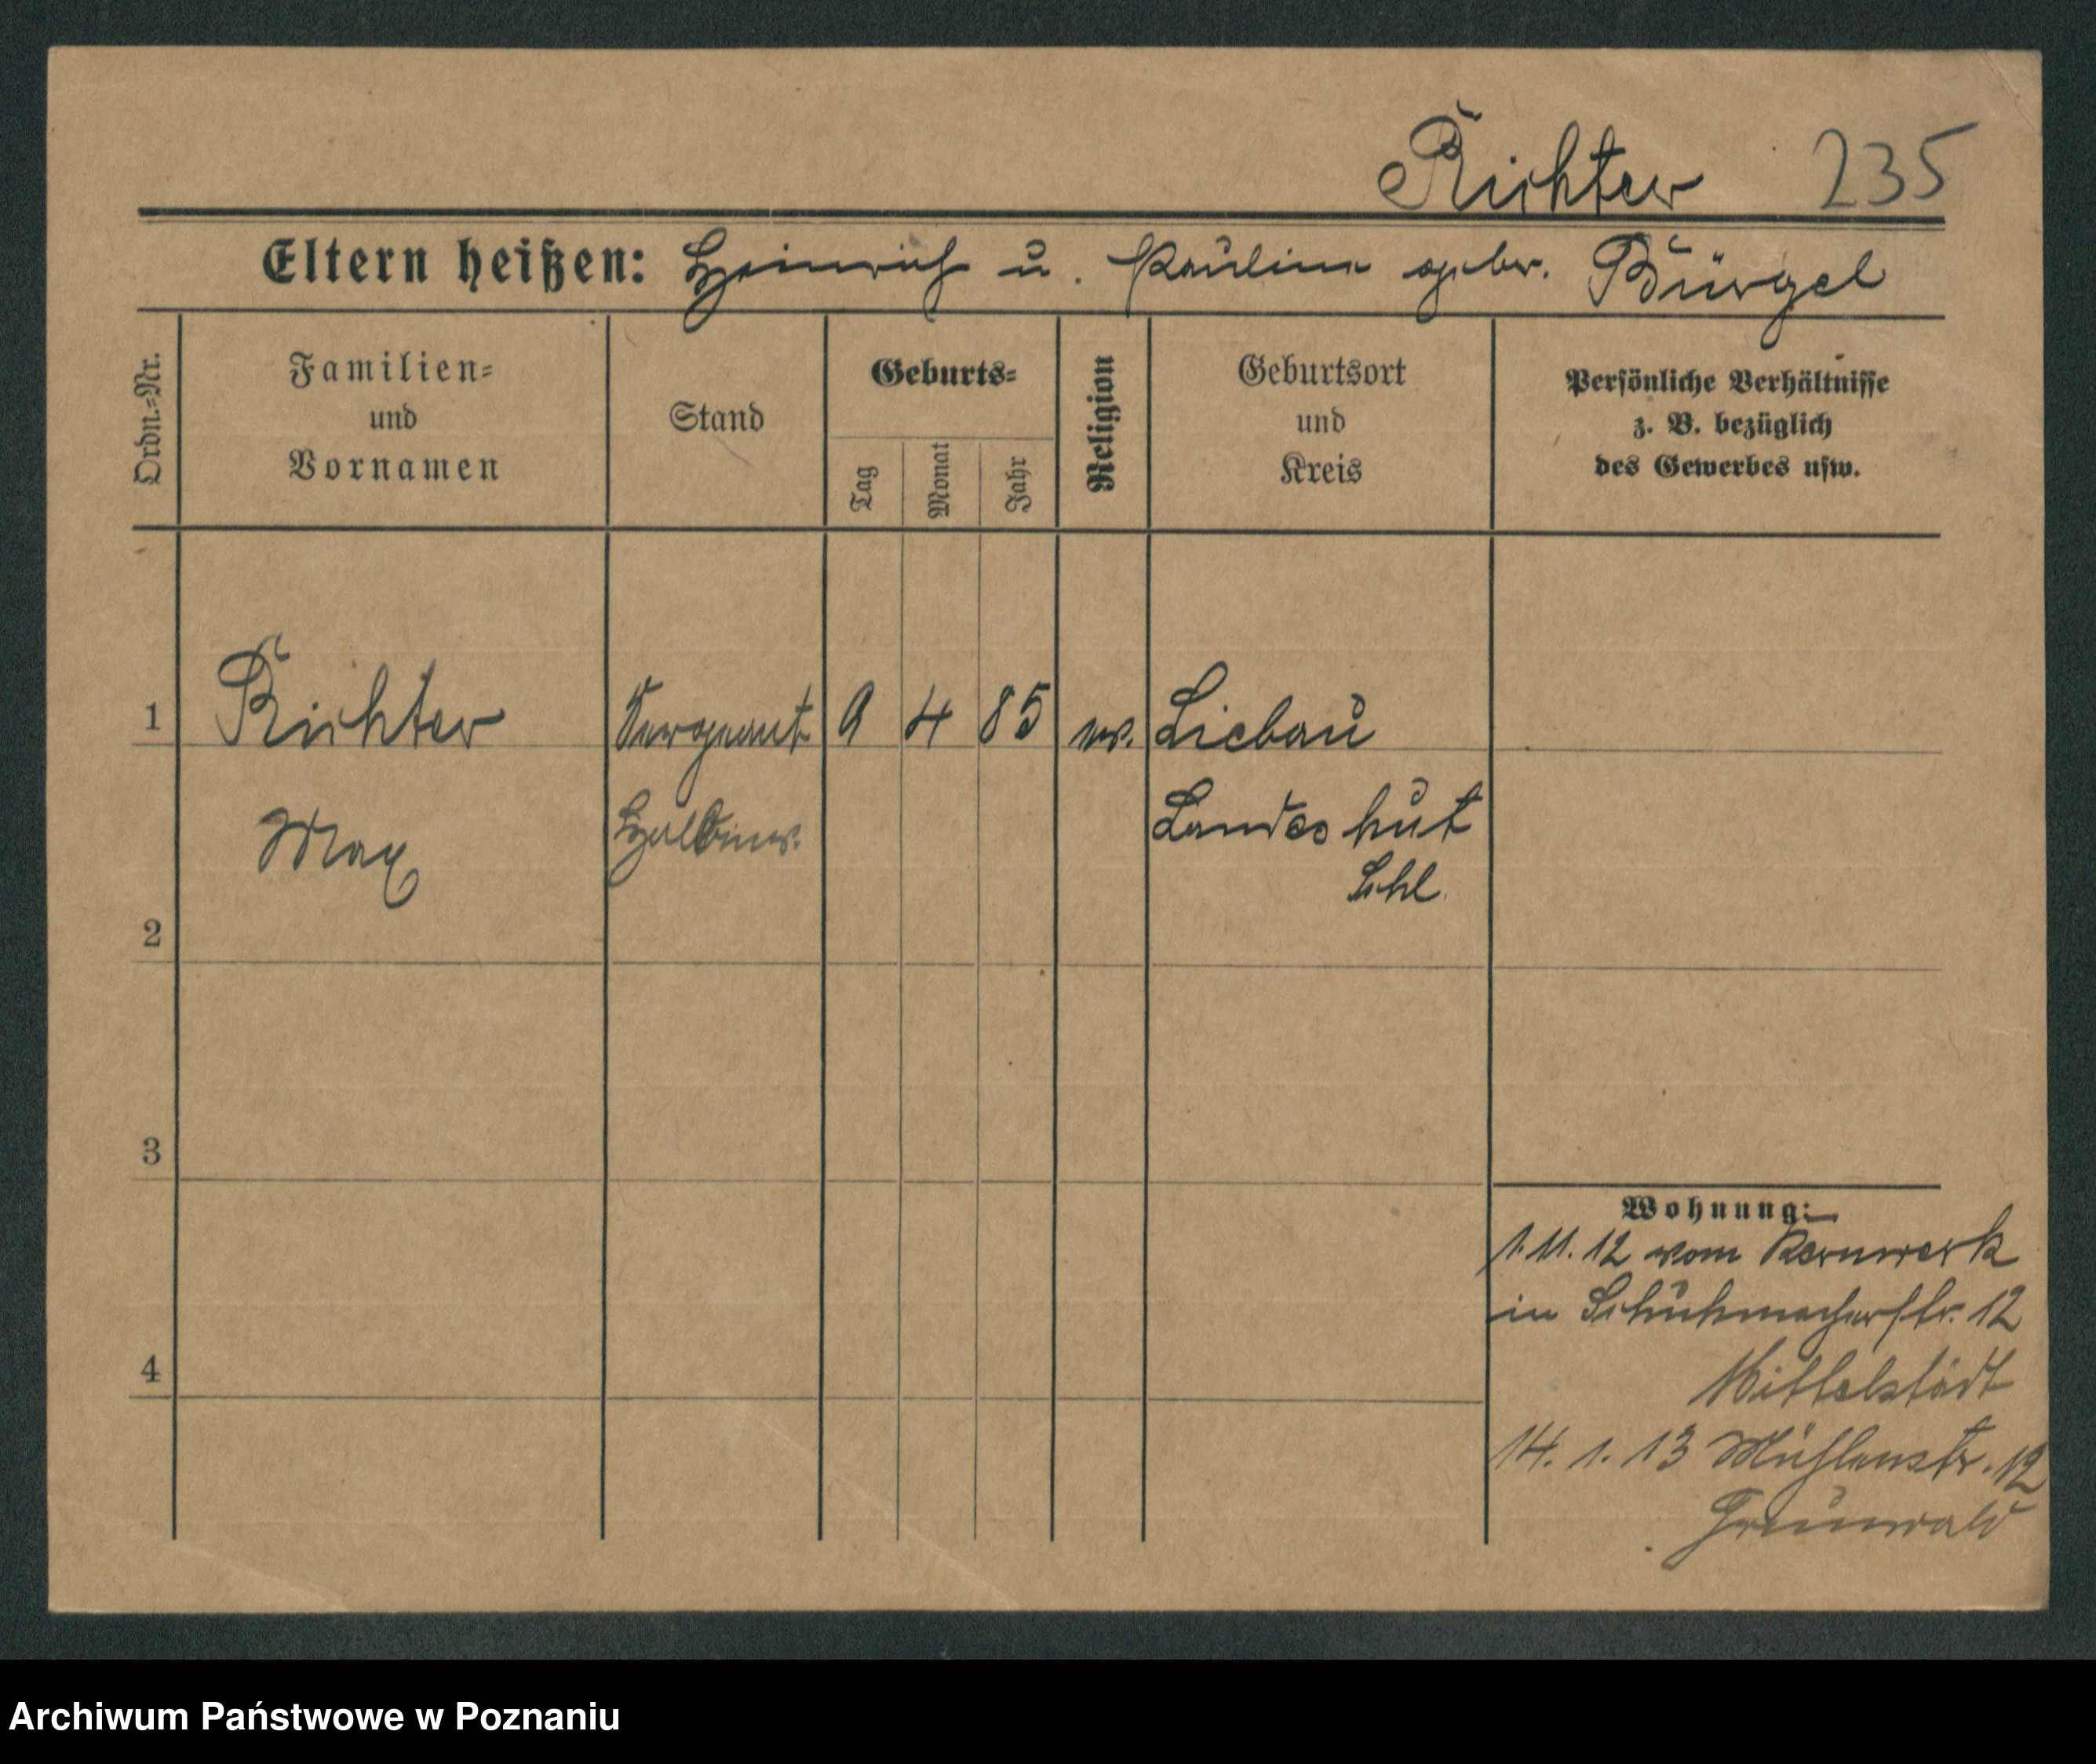 Richter 235
Eltern heißen: Heinrich u. Pauline gebr. Bürgel
Ordn.=Nr.
Familien=
und
Vornamen
Stand
Geburts=
Tag
Monat
Jahr
Religion
Geburtsort
und
Kreis
Persönliche Verhältnisse
z. B. bezüglich
des Gewerbes usw.
1 Richter Sergeant 9 4 85 ev. Liebau
Max Landeshut
Schl.
2
3
4
Wohnung:
1.11.12 vom Kernwerk
in Schuhmacherstr. 12
Mittelstädt
14.1.13 Mühlenstr. 12
Grünwald
Archiwum Państwowe w Poznaniu